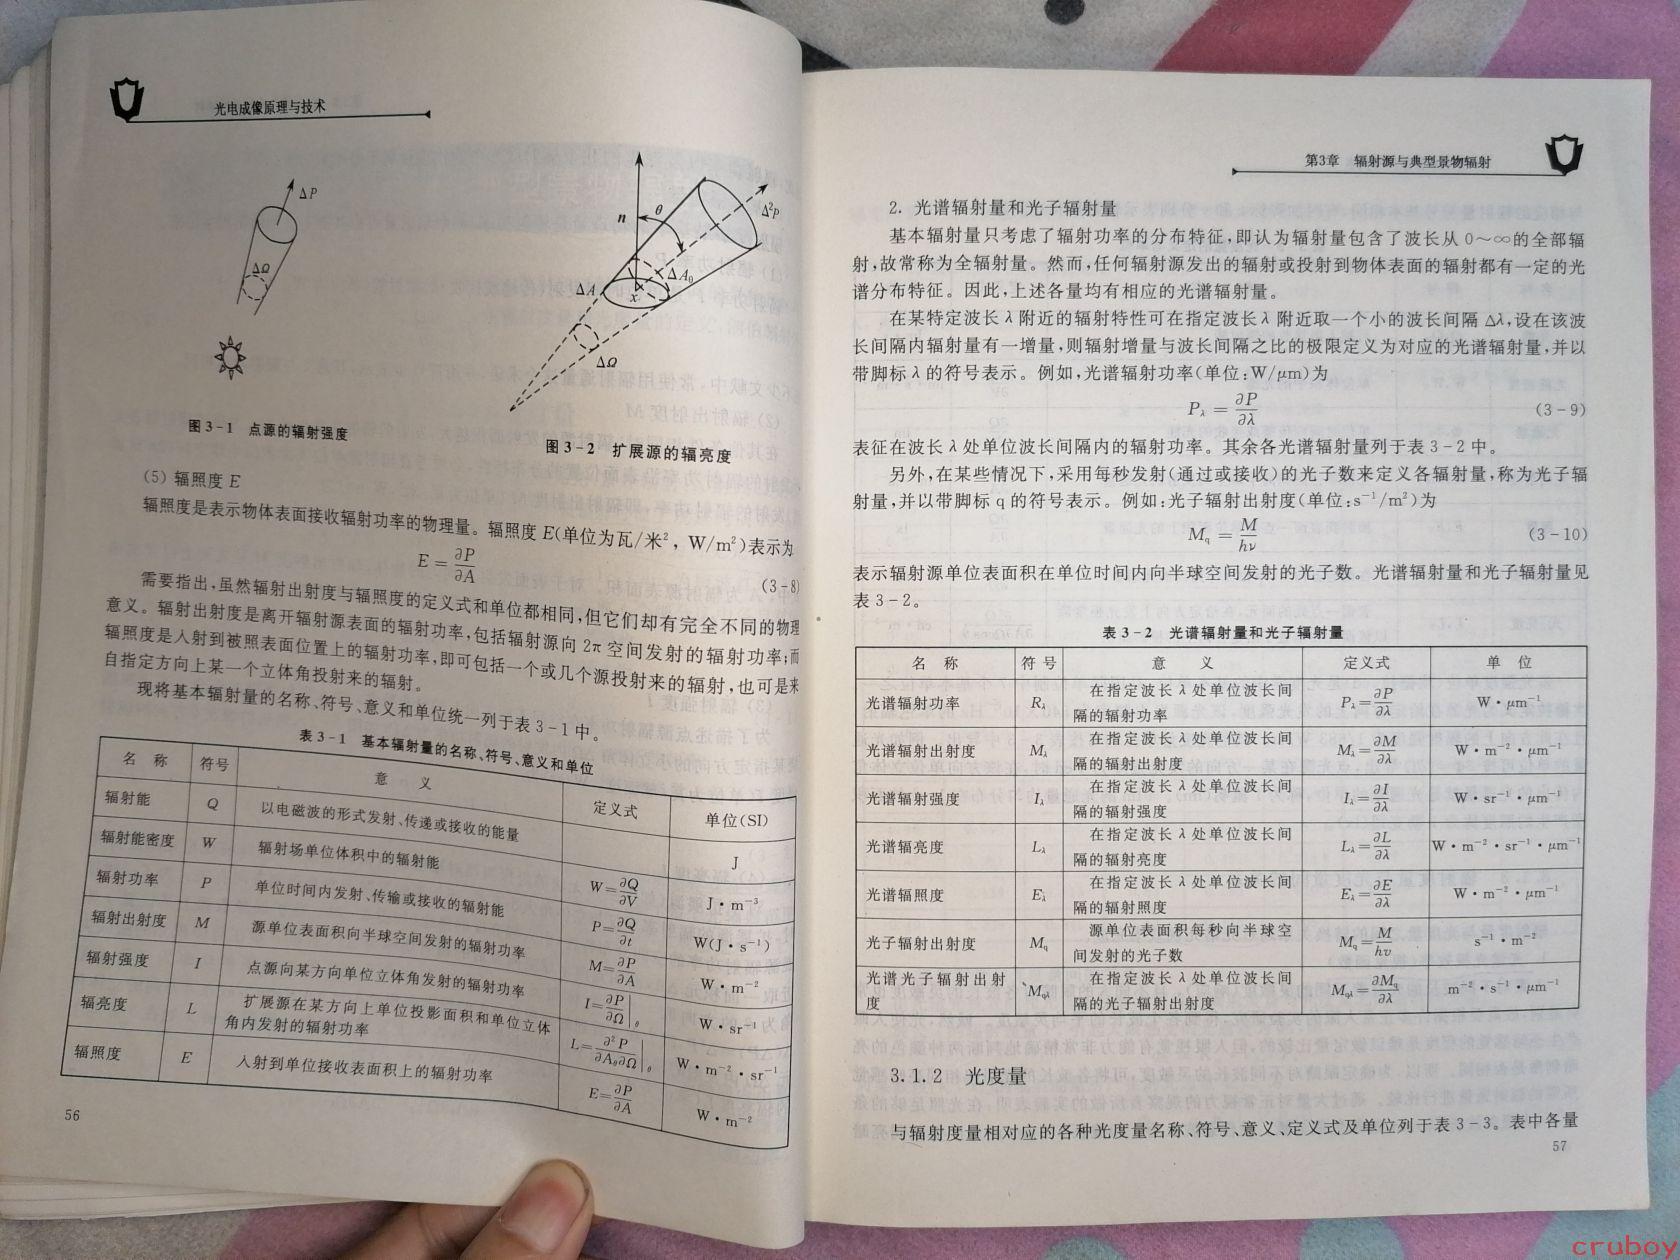 光电成像原理与技术
ΔP
ΔΩ
图3-1 点源的辐射强度
n
θ
Δ²P
ΔA
ΔA₀
x
ΔΩ
图3-2 扩展源的辐亮度
(5) 辐照度 E
辐照度是表示物体表面接收辐射功率的物理量。辐照度 E(单位为瓦/米²，W/m²)表示为
E=∂P/∂A (3-8)
需要指出,虽然辐射出射度与辐照度的定义式和单位都相同,但它们却有完全不同的物理
意义。辐射出射度是离开辐射源表面的辐射功率,包括辐射源向 2π 空间发射的辐射功率;而
辐照度是入射到被照表面位置上的辐射功率,即可包括一个或几个源投射来的辐射,也可是来
自指定方向上某一个立体角投射来的辐射。
现将基本辐射量的名称、符号、意义和单位统一列于表 3-1 中。
表 3-1 基本辐射量的名称、符号、意义和单位
名 称 符号 意 义 定义式 单位(SI)
辐射能 Q 以电磁波的形式发射、传递或接收的能量 J
辐射能密度 W 辐射场单位体积中的辐射能 W=∂Q/∂V J·m⁻³
辐射功率 P 单位时间内发射、传输或接收的辐射能 P=∂Q/∂t W(J·s⁻¹)
辐射出射度 M 源单位表面积向半球空间发射的辐射功率 M=∂P/∂A W·m⁻²
辐射强度 I 点源向某方向单位立体角发射的辐射功率 I=∂P/∂Ω|θ W·sr⁻¹
辐亮度 L 扩展源在某方向上单位投影面积和单位立体
角内发射的辐射功率 L=∂²P/∂A₀∂Ω|θ W·m⁻²·sr⁻¹
辐照度 E 入射到单位接收表面积上的辐射功率 E=∂P/∂A W·m⁻²
56
第3章 辐射源与典型景物辐射
2. 光谱辐射量和光子辐射量
基本辐射量只考虑了辐射功率的分布特征,即认为辐射量包含了波长从 0～∞的全部辐
射,故常称为全辐射量。然而,任何辐射源发出的辐射或投射到物体表面的辐射都有一定的光
谱分布特征。因此,上述各量均有相应的光谱辐射量。
在某特定波长 λ 附近的辐射特性可在指定波长 λ 附近取一个小的波长间隔 Δλ,设在该波
长间隔内辐射量有一增量,则辐射增量与波长间隔之比的极限定义为对应的光谱辐射量,并以
带脚标 λ 的符号表示。例如,光谱辐射功率(单位:W/μm)为
Pλ = ∂P/∂λ (3-9)
表征在波长 λ 处单位波长间隔内的辐射功率。其余各光谱辐射量列于表 3-2 中。
另外,在某些情况下,采用每秒发射(通过或接收)的光子数来定义各辐射量,称为光子辐
射量,并以带脚标 q 的符号表示。例如:光子辐射出射度(单位:s⁻¹/m²)为
Mq = M/hν (3-10)
表示辐射源单位表面积在单位时间内向半球空间发射的光子数。光谱辐射量和光子辐射量见
表 3-2。
表 3-2 光谱辐射量和光子辐射量
名 称 符 号 意 义 定义式 单 位
光谱辐射功率 Rλ 在指定波长 λ 处单位波长间
隔的辐射功率 Pλ=∂P/∂λ W·μm⁻¹
光谱辐射出射度 Mλ 在指定波长 λ 处单位波长间
隔的辐射出射度 Mλ=∂M/∂λ W·m⁻²·μm⁻¹
光谱辐射强度 Iλ 在指定波长 λ 处单位波长间
隔的辐射强度 Iλ=∂I/∂λ W·sr⁻¹·μm⁻¹
光谱辐亮度 Lλ 在指定波长 λ 处单位波长间
隔的辐射亮度 Lλ=∂L/∂λ W·m⁻²·sr⁻¹·μm⁻¹
光谱辐照度 Eλ 在指定波长 λ 处单位波长间
隔的辐射照度 Eλ=∂E/∂λ W·m⁻²·μm⁻¹
光子辐射出射度 Mq 源单位表面积每秒向半球空
间发射的光子数 Mq=M/hν s⁻¹·m⁻²
光谱光子辐射出射
度 Mqλ 在指定波长 λ 处单位波长间
隔的光子辐射出射度 Mqλ=∂Mq/∂λ m⁻²·s⁻¹·μm⁻¹
3.1.2 光度量
与辐射度量相对应的各种光度量名称、符号、意义、定义式及单位列于表 3-3。表中各量
57
cruboy